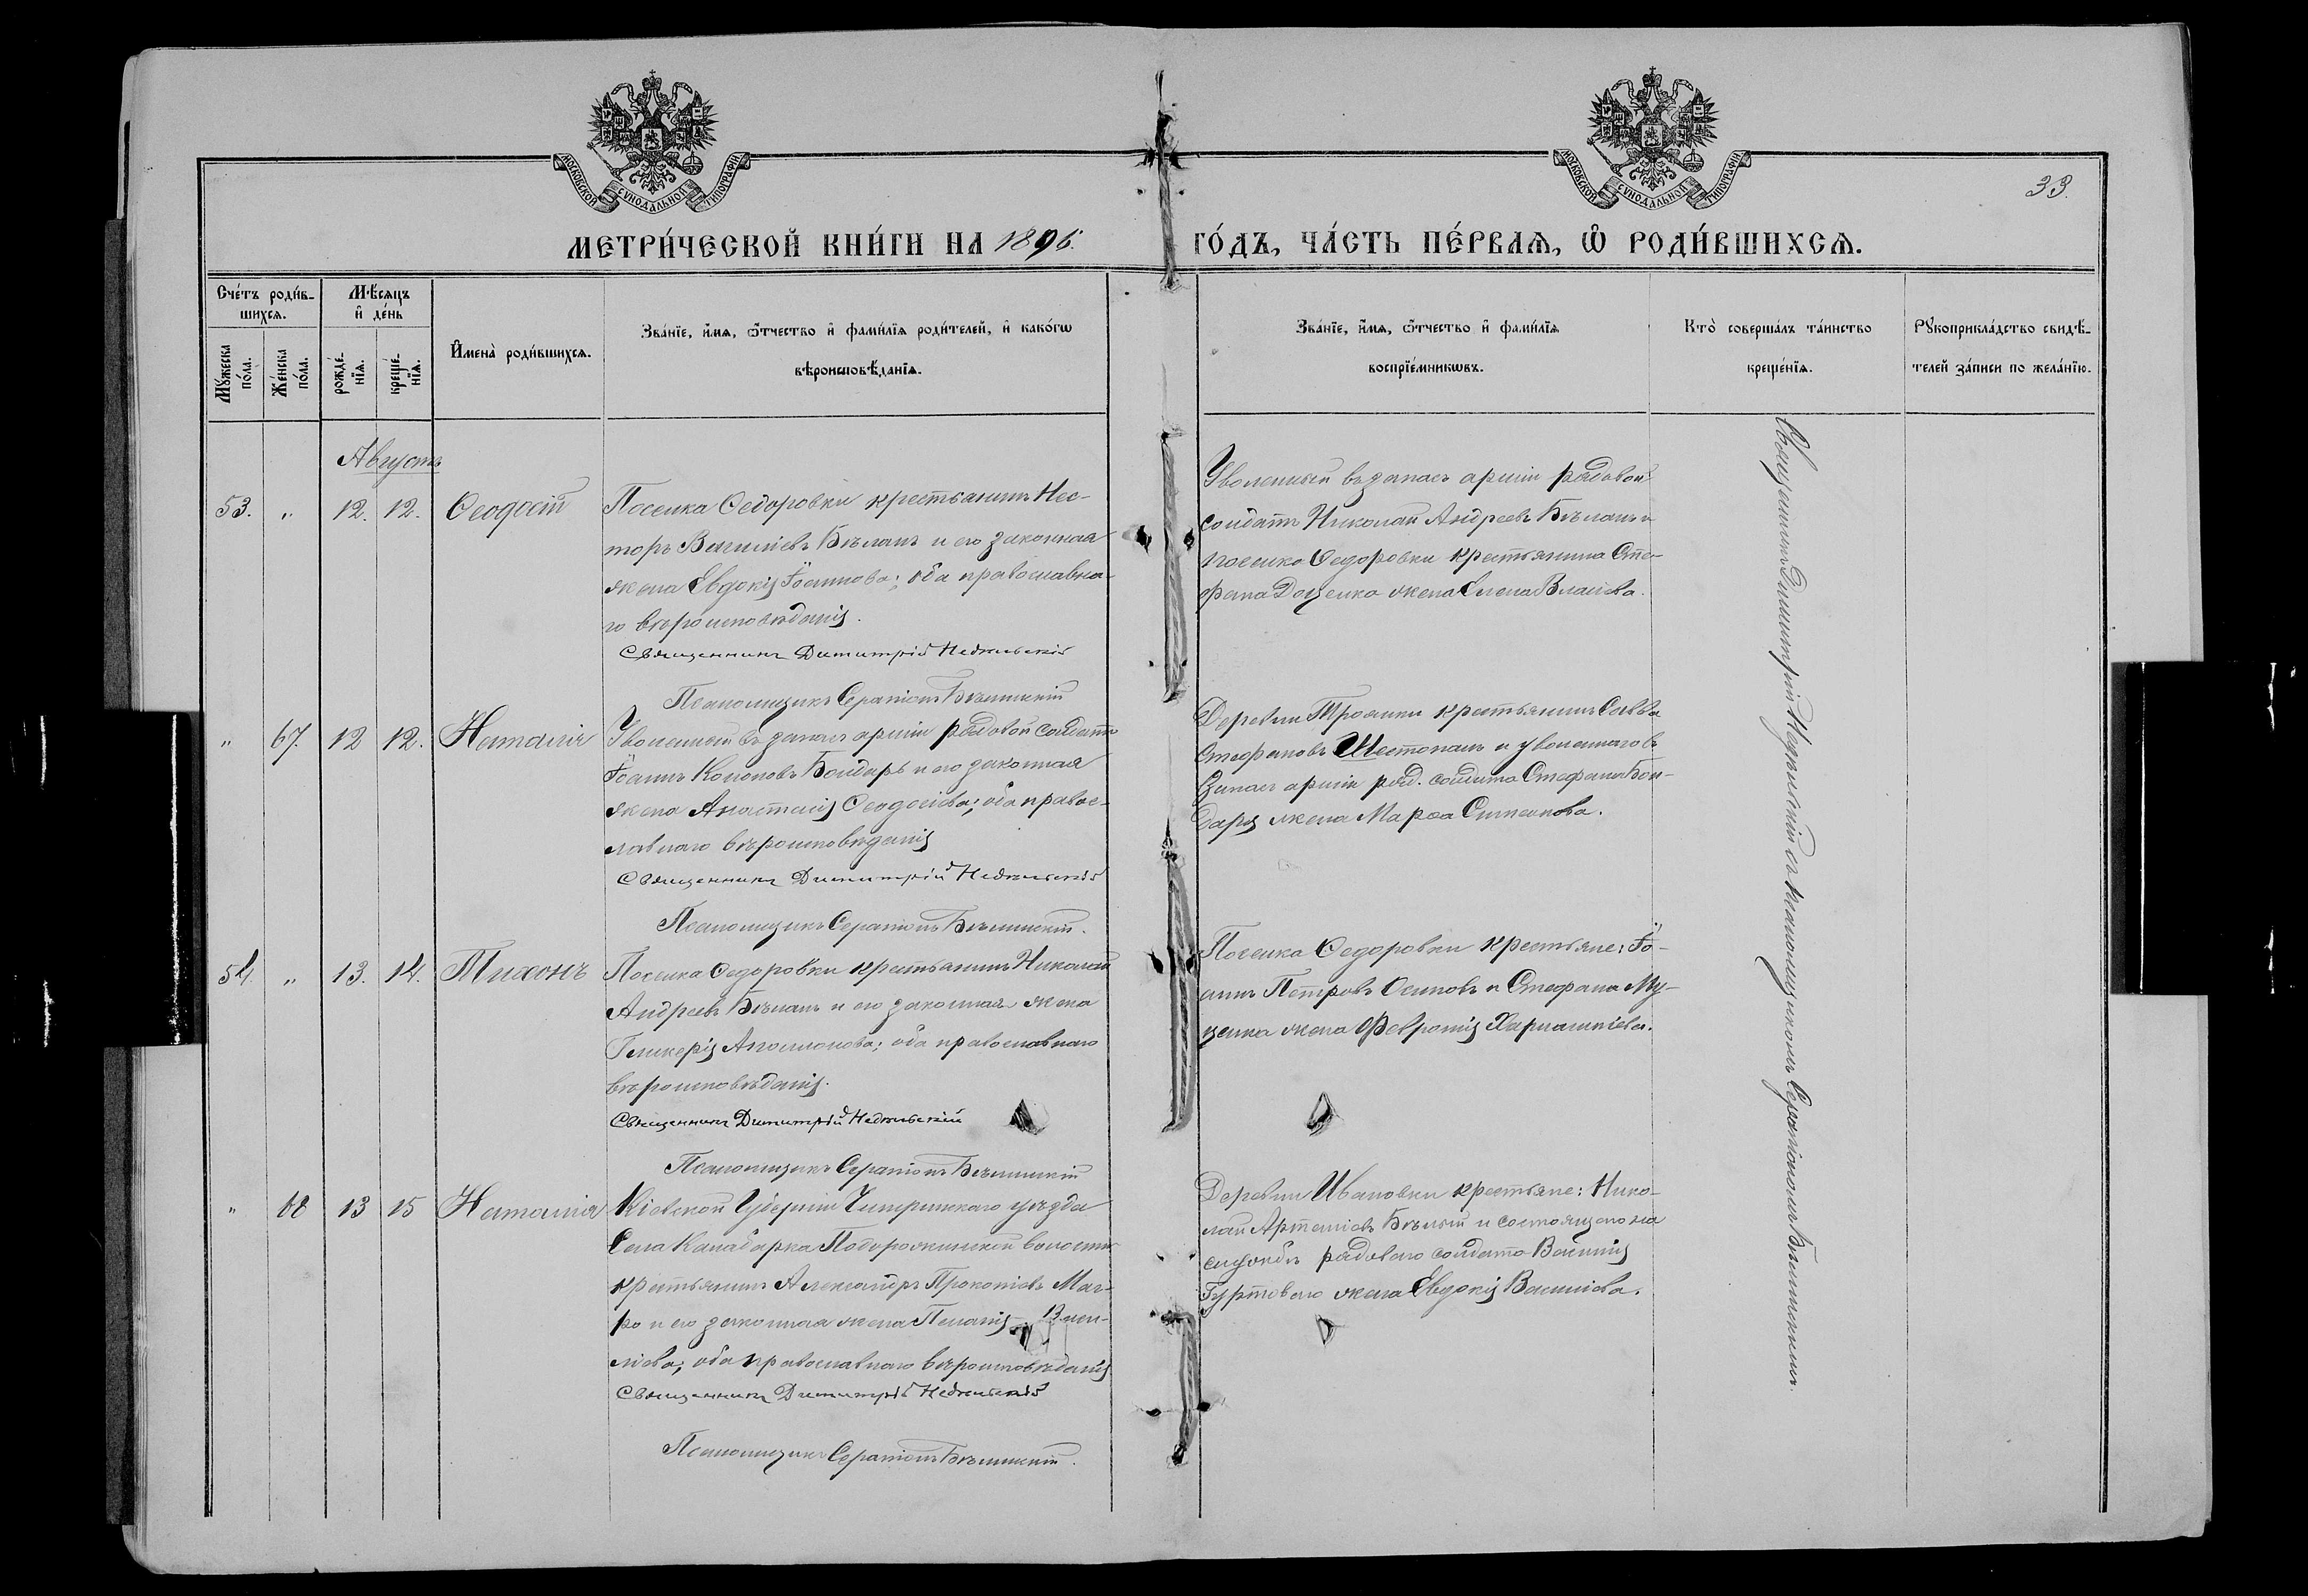 МОСКОВСКОЙ СѴНОДАЛЬНОЙ ТИПОГРАФІИ
МОСКОВСКОЙ СѴНОДАЛЬНОЙ ТИПОГРАФІИ
33.
МЕТРИ́ЧЕСКОЙ КНИ́ГИ НА 1896.
ГО́ДЪ, ЧА́СТЬ ПЕ́РВАѦ, Ѡ҆ РОДИ́ВШИХСѦ.
Сче́тъ роди́в-
шихсѧ.
Мꙋ́жеска по́ла.
Же́нска по́ла.
Мѣ́сѧцъ
и҆ де́нь
рожде́-нїѧ.
креще́-нїѧ.
И҆мена̀ роди́вшихсѧ.
Зва́нїе, и҆́мѧ, ѻ҆́тчество и҆ фами́лїѧ роди́телей, и҆ како́гѡ
вѣроисповѣ́данїѧ.
Зва́нїе, и҆́мѧ, ѻ҆́тчество и҆ фами́лїѧ
воспрїе́мникѡвъ.
Кто̀ соверша́лъ та́инство
креще́нїѧ.
Рꙋкоприкла́дство свидѣ́-
телей за́писи по жела́нїю.
Августъ
53. „ 12. 12. Ѳеодосій
Поселка Ѳедоровки крестьянинъ Нес-
торъ Василіевъ Бѣланъ и его законная
жена Евдокія Іоаннова; оба православна-
го вѣроисповѣданія.
Священникъ Димитрій Недѣльскій
Псаломщикъ Серапіонъ Бѣлинскій
Уволенный въ запасъ арміи рядовой
солдатъ Николай Андреевъ Бѣланъ и
поселка Ѳедоровки крестьянина Сте-
фана Доценка жена Елена Власіева.
„ 67. 12 12. Наталія
Уволенный въ запасъ арміи рядовой солдатъ
Іоаннъ Кононовъ Бондарь и его законная
жена Анастасія Ѳеодосіева; оба правос-
лавнаго вѣроисповѣданія
Священникъ Димитрій Недѣльскій
Псаломщикъ Серапіонъ Бѣлинскій.
Деревни Трояники крестьянинъ Савва
Стефановъ Шестопалъ и уволеннаго въ
запасъ арміи ряд. солдата Стефана Бон-
даря жена Марѳа Симеонова.
54. „ 13. 14. Тихонъ
Поселка Ѳедоровки крестьянинъ Николай
Андреевъ Бѣланъ и его законная жена
Гликерія Аполлонова; оба православнаго
вѣроисповѣданія.
Священникъ Димитрій Недѣльскій
Псаломщикъ Серапіонъ Бѣлинскій
Поселка Ѳедоровки крестьяне: Іо-
аннъ Петровъ Осиповъ и Стефана Му-
ценка жена Февронія Харлампіева.
„ 68 13 15 Наталія
Кіевской Губерніи Чигиринскаго уѣзда
Села Калабарка Подорожнянской волости
крестьянинъ Александръ Прокопіевъ
и его законная жена Пелагія Васи-
ліева; оба православнаго вѣроисповѣданія
Священникъ Димитрій Недѣльскій
Псаломщикъ Серапіонъ Бѣлинскій.
Деревни Ивановки крестьяне: Нико-
лай Артеміевъ Бѣлый и состоящаго на
службѣ рядоваго солдата Василія
Гуртоваго жена Евдокія Василіева.
Священникъ Димитрій Недѣльскій съ псаломщикомъ Серапіономъ Бѣлинскимъ